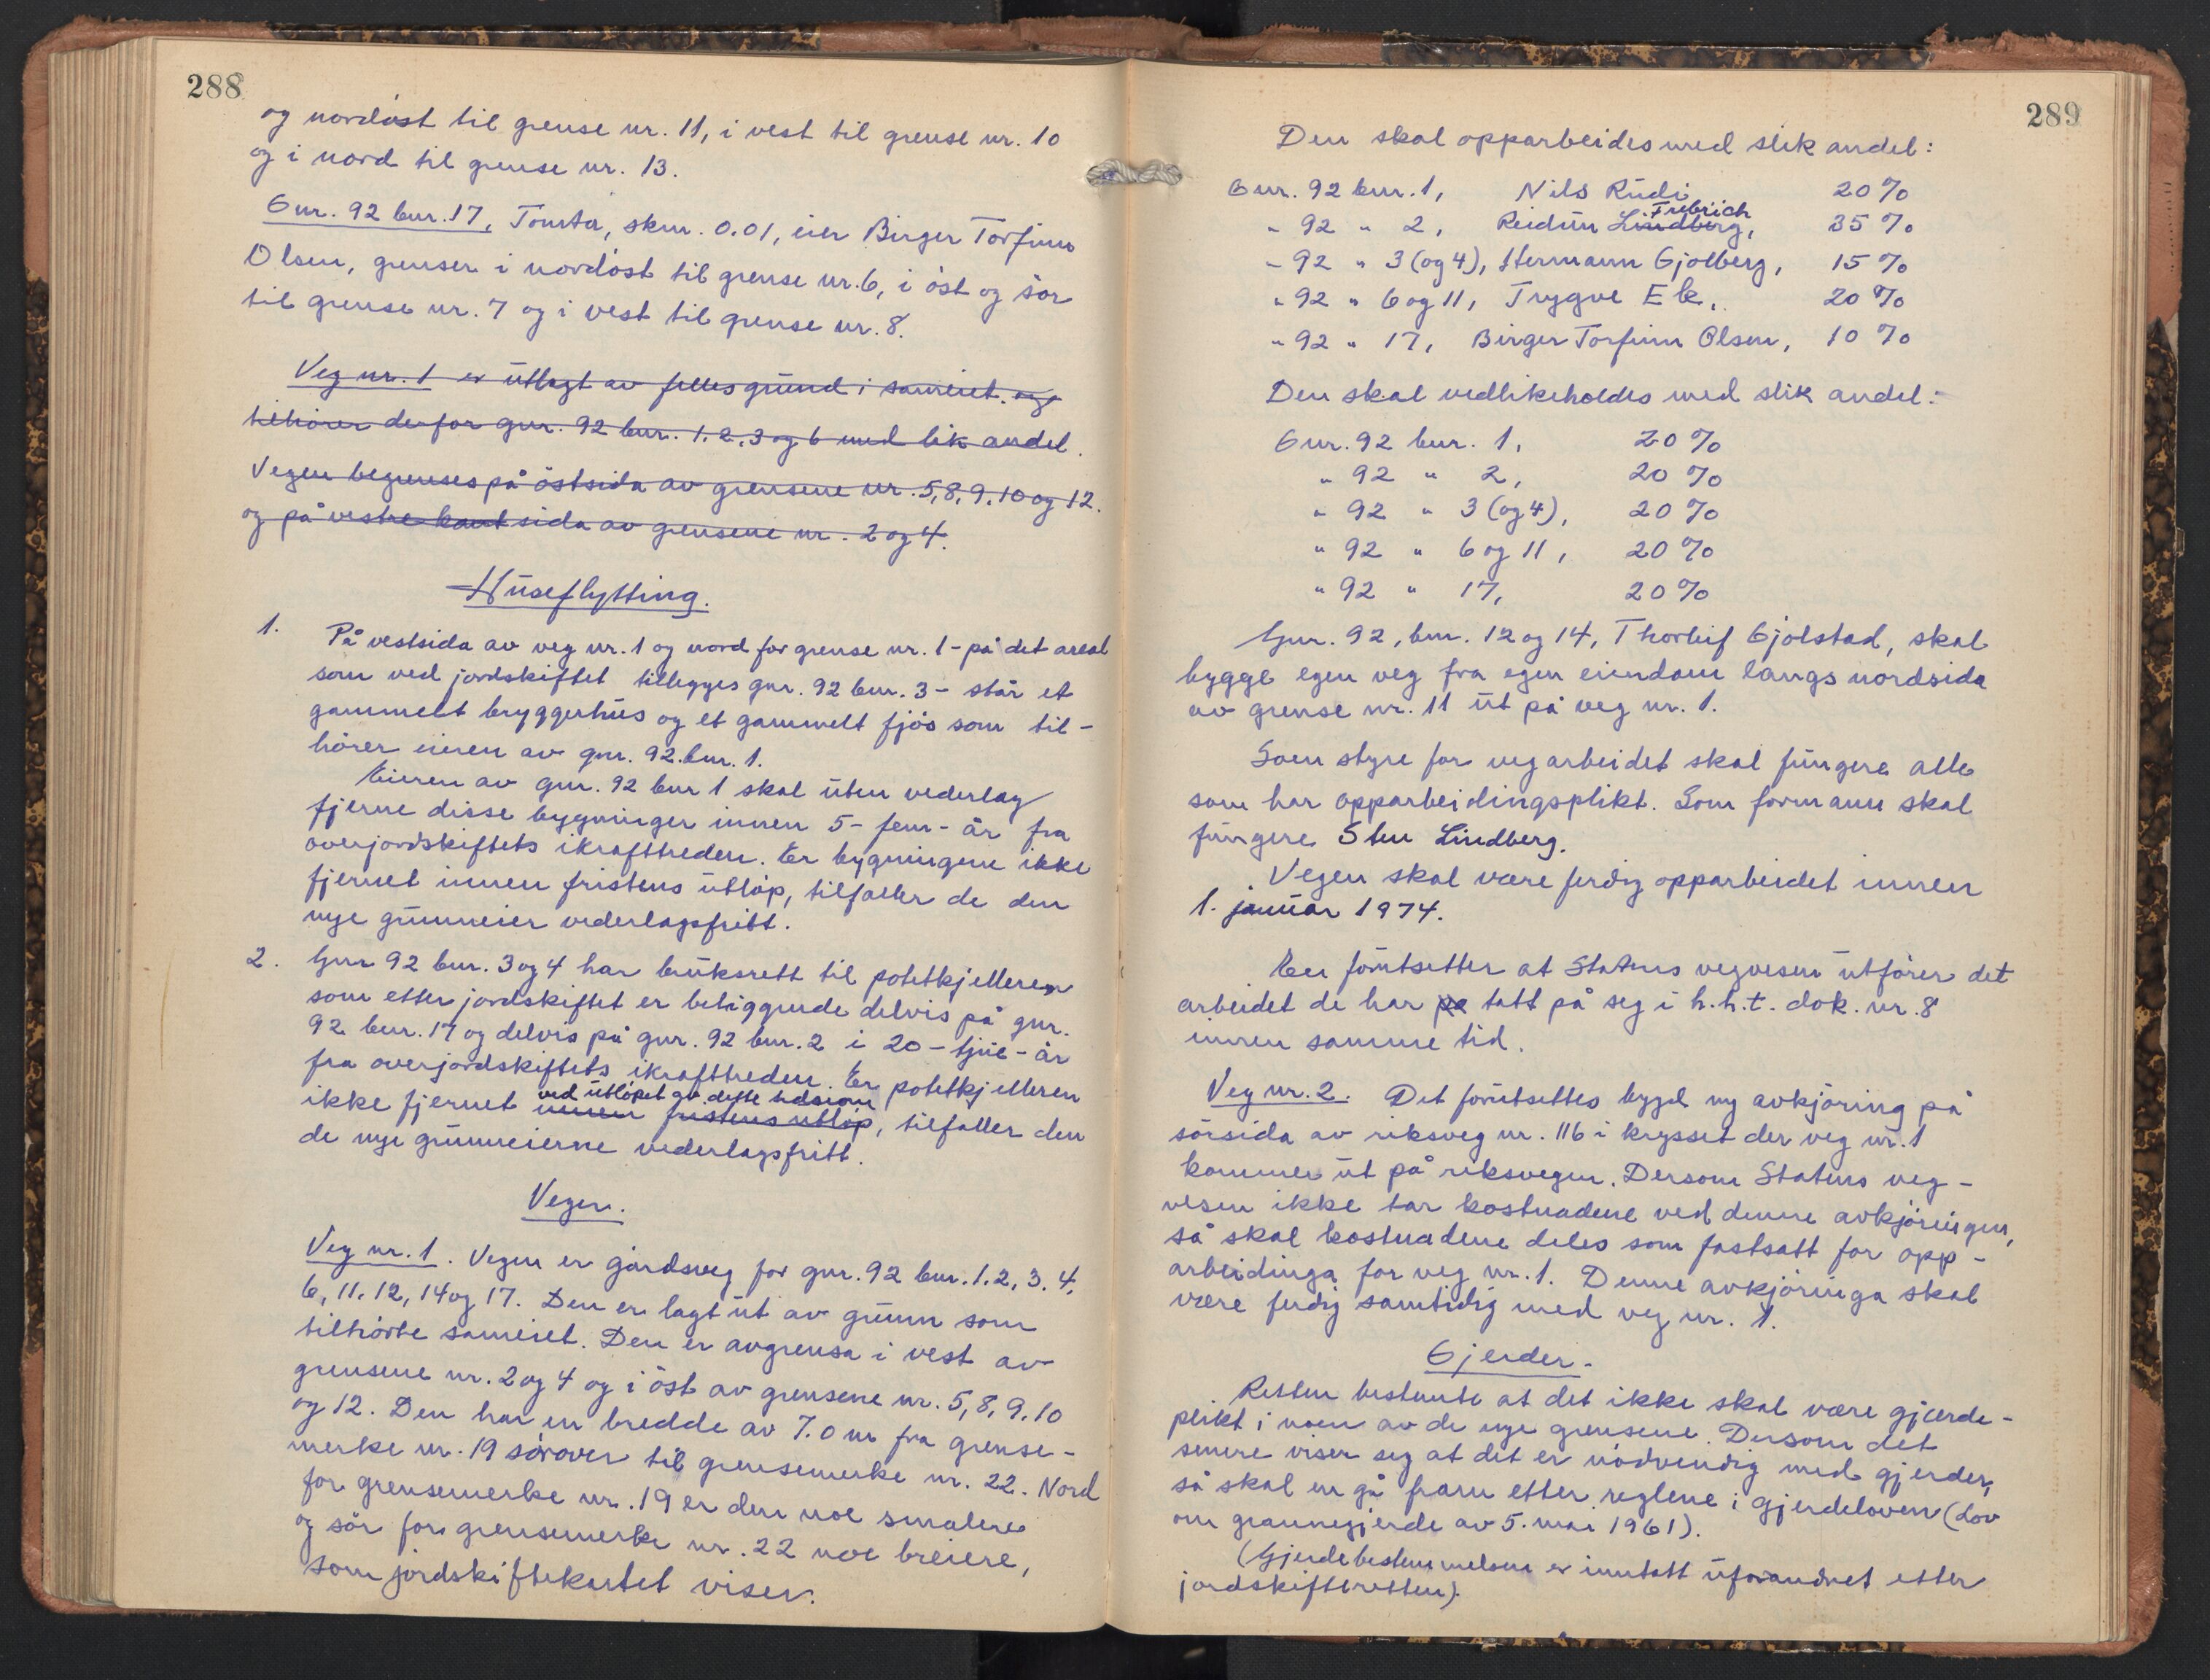 288
og nordöst til grense nr. 11, i vest til grense nr. 10
og i nord til grense nr. 13.
Gnr. 92 bnr. 17, Tomta, skm. 0.01, eier Birger Torfinn
Olsen, grenser i nordöst til grense nr. 6, i öst og sör
til grense nr. 7 og i vest til grense nr. 8.
Veg nr. 1 er utlagt av fellesgrunn i sameiet. og
tilhörer derfor gnr. 92 bnr. 1, 2, 3 og 6 med lik andel.
Vegen begrenses på östsida av grensene nr. 5, 8, 9, 10 og 12.
og på vestre kant sida av grensene nr. 2 og 4.
Huseflytting.
1. På vestsida av veg nr. 1 og nord for grense nr. 1 - på det areal
som ved jordskiftet tillegges gnr. 92 bnr. 3 - står et
gammelt bryggerhus og et gammelt fjös som til-
hörer eieren av gnr. 92 bnr. 1.
Eieren av gnr. 92 bnr 1 skal uten vederlag
fjerne disse bygninger innen 5 - fem - år fra
overjordskiftets ikrafttreden. Er bygningene ikke
fjernet innen fristens utlöp, tilfaller de den
nye grunneier vederlagsfritt.
2. Gnr 92 bnr. 3 og 4 har bruksrett til potetkjelleren
som etter jordskiftet er beliggende delvis på gnr.
92 bnr. 17 og delvis på gnr. 92 bnr. 2 i 20 - tjue - år
fra overjordskiftets ikrafttreden. Er potetkjelleren
ved utlöpet av dette tidsrom
ikke fjernet innen fristens utlöp, tilfaller den
de nye grunneierne vederlagsfritt.
Veger.
Veg nr. 1. Vegen er gårdsveg for gnr. 92 bnr. 1, 2, 3, 4,
6, 11, 12, 14 og 17. Den er lagt ut av grunn som
tilhörte sameiet. Den er avgrensa i vest av
grensene nr. 2 og 4 og i öst av grensene nr. 5, 8, 9, 10
og 12. Den har en bredde av 7.0 m fra grense-
merke nr. 19 sörover til grensemerke nr. 22. Nord
for grensemerke nr. 19 er den noe smalere
og sör for grensemerke nr. 22 noe breiere,
som jordskiftekartet viser.
289
Den skal opparbeides med slik andel:
Gnr. 92 bnr. 1, Nils Rudi 20 %
Frebrich
" 92 " 2, Reidun Lindberg, 35 %
" 92 " 3 (og 4), Hermann Gjölberg, 15 %
" 92 " 6 og 11, Trygve Ek, 20 %
" 92 " 17, Birger Torfinn Olsen, 10 %
Den skal vedlikeholdes med slik andel:
Gnr. 92 bnr. 1, 20 %
" 92 " 2, 20 %
" 92 " 3 (og 4), 20 %
" 92 " 6 og 11, 20 %
" 92 " 17, 20 %
Gnr. 92, bnr. 12 og 14, Thorleif Gjölstad, skal
bygge egen veg fra egen eiendom langs nordsida
av grense nr. 11 ut på veg nr. 1.
Som styre for vegarbeidet skal fungere alle
som har opparbeidingsplikt. Som formann skal
fungere Sten Lindberg.
Vegen skal være ferdig opparbeidet innen
1. januar 1974.
En forutsetter at Statens vegvesen utförer det
arbeidet de har på tatt på seg i h.h.t. dok. nr. 8
innen samme tid.
Veg nr. 2. Det forutsettes bygd ny avkjöring på
sörsida av riksveg nr. 116 i krysset der veg nr. 1
kommer ut på riksvegen. Dersom Statens veg-
vesen ikke tar kostnadene ved denne avkjöringen,
så skal kostnadene deles som fastsatt for opp-
arbeidinga for veg nr. 1. Denne avkjöringa skal
være ferdig samtidig med veg nr. 1.
Gjerder.
Retten bestemte at det ikke skal være gjerde-
plikt i noen av de nye grensene. Dersom det
senere viser seg at det er nödvendig med gjerder,
så skal en gå fram etter reglene i gjerdeloven (Lov
om grannegjerde av 5. mai 1961).
(Gjerdebestemmelsen er inntatt uforandret etter
jordskifteretten).